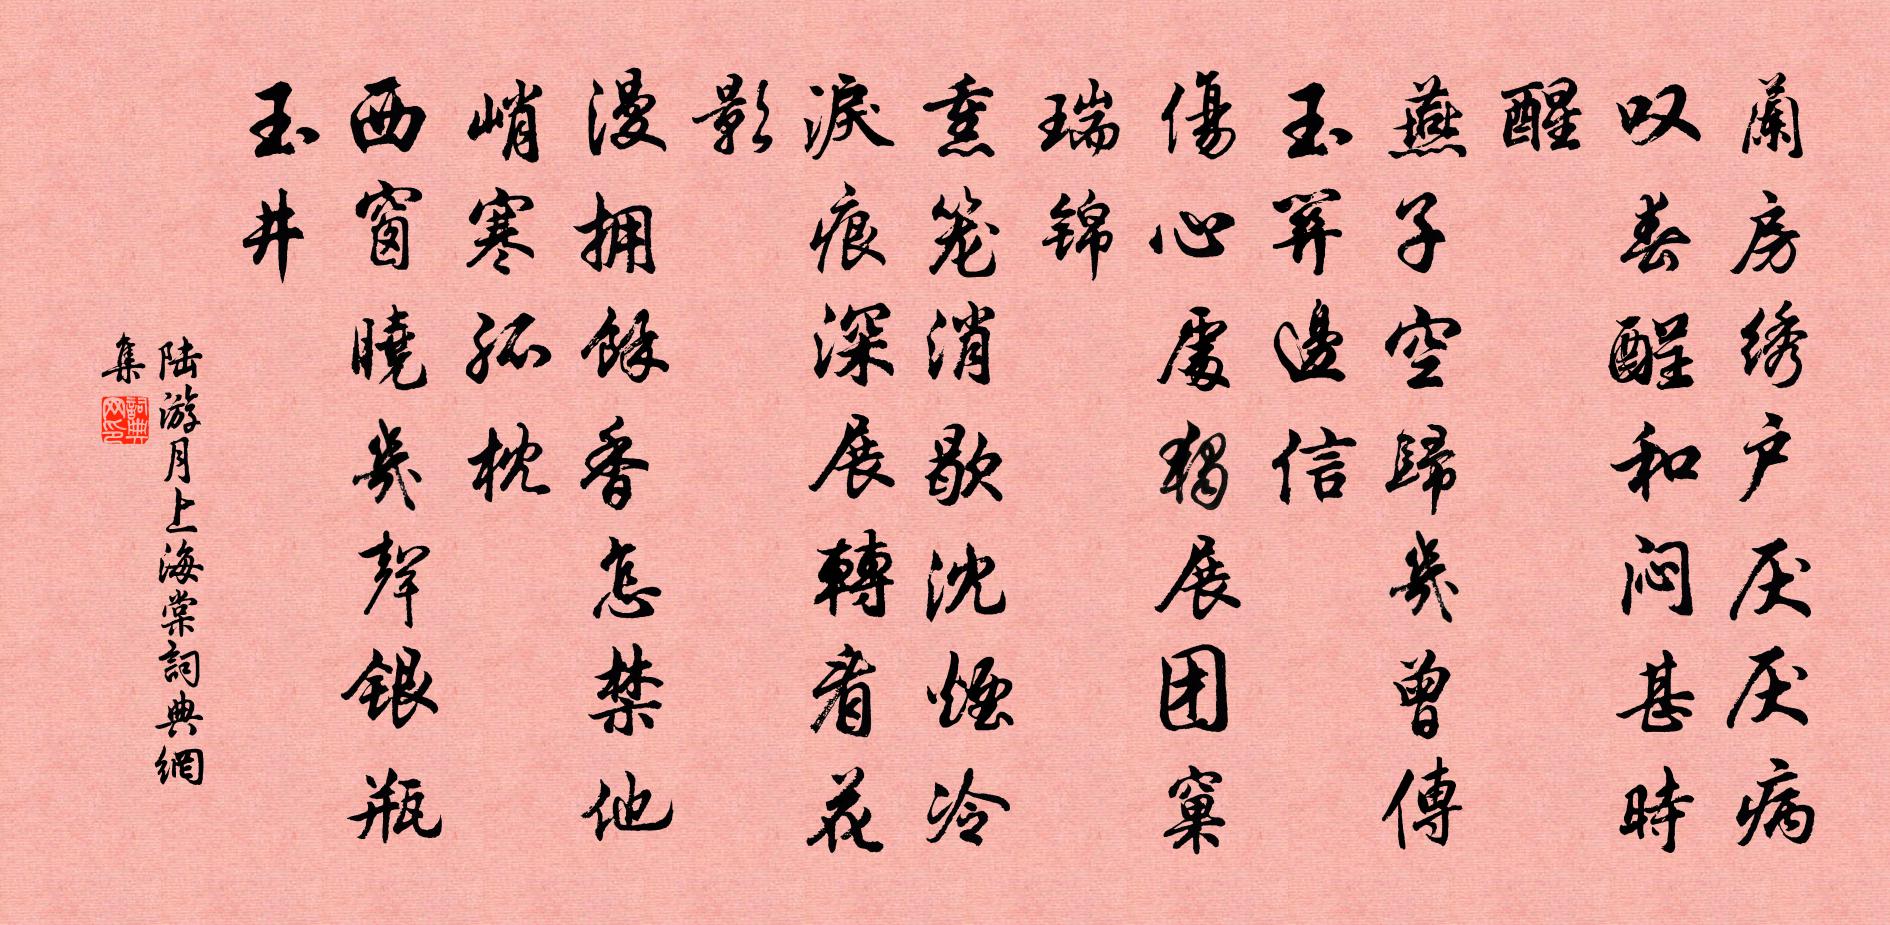 蘭房绣户厌厌病
叹春酲和闷甚時
醒
燕子空歸幾曾傳
玉關邊信
傷心處獨展团窠
瑞锦
熏笼消歇沈煙冷
淚痕深展轉看花
影
漫拥餘香怎禁他
峭寒孤枕
西窗曉幾聲銀瓶
玉井
陆游月上海棠詞典網
集
詞典网印